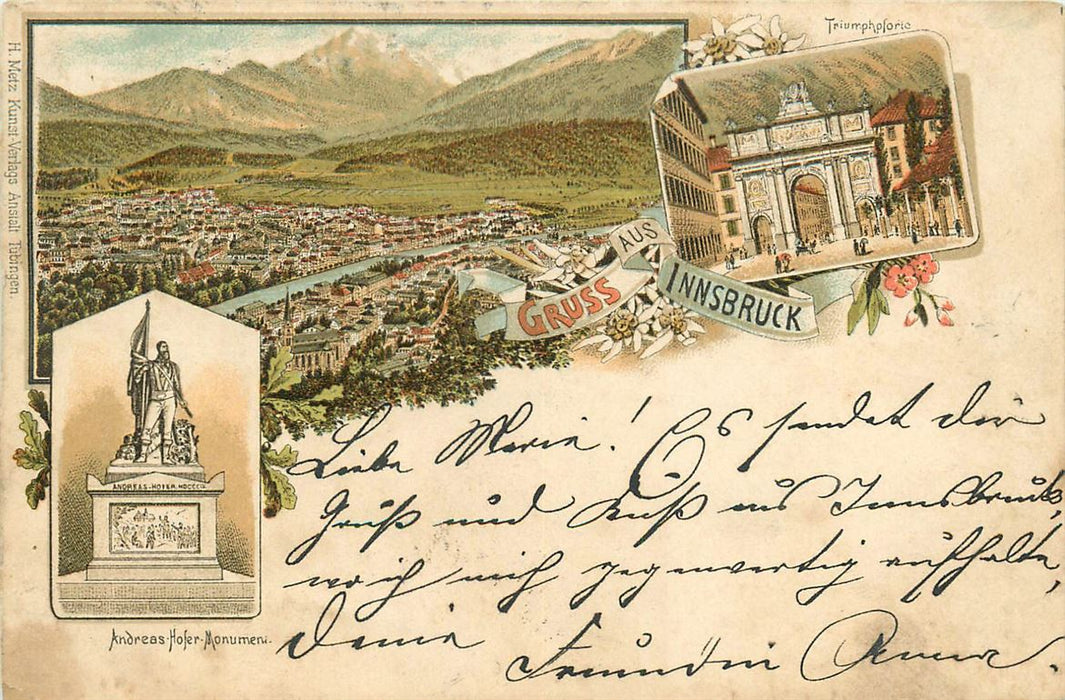 H. Metz Kunst-Verlags-Anstalt Tübingen.
Triumphpforte
GRUSS AUS INNSBRUCK
ANDREAS·HOFER
Andreas-Hofer-Monument.
Liebe Marie! Es sendet dir
Gruß und Kuß aus Innsbruck,
wo ich mich gegenwertig aufhalte,
Deine
Freundin